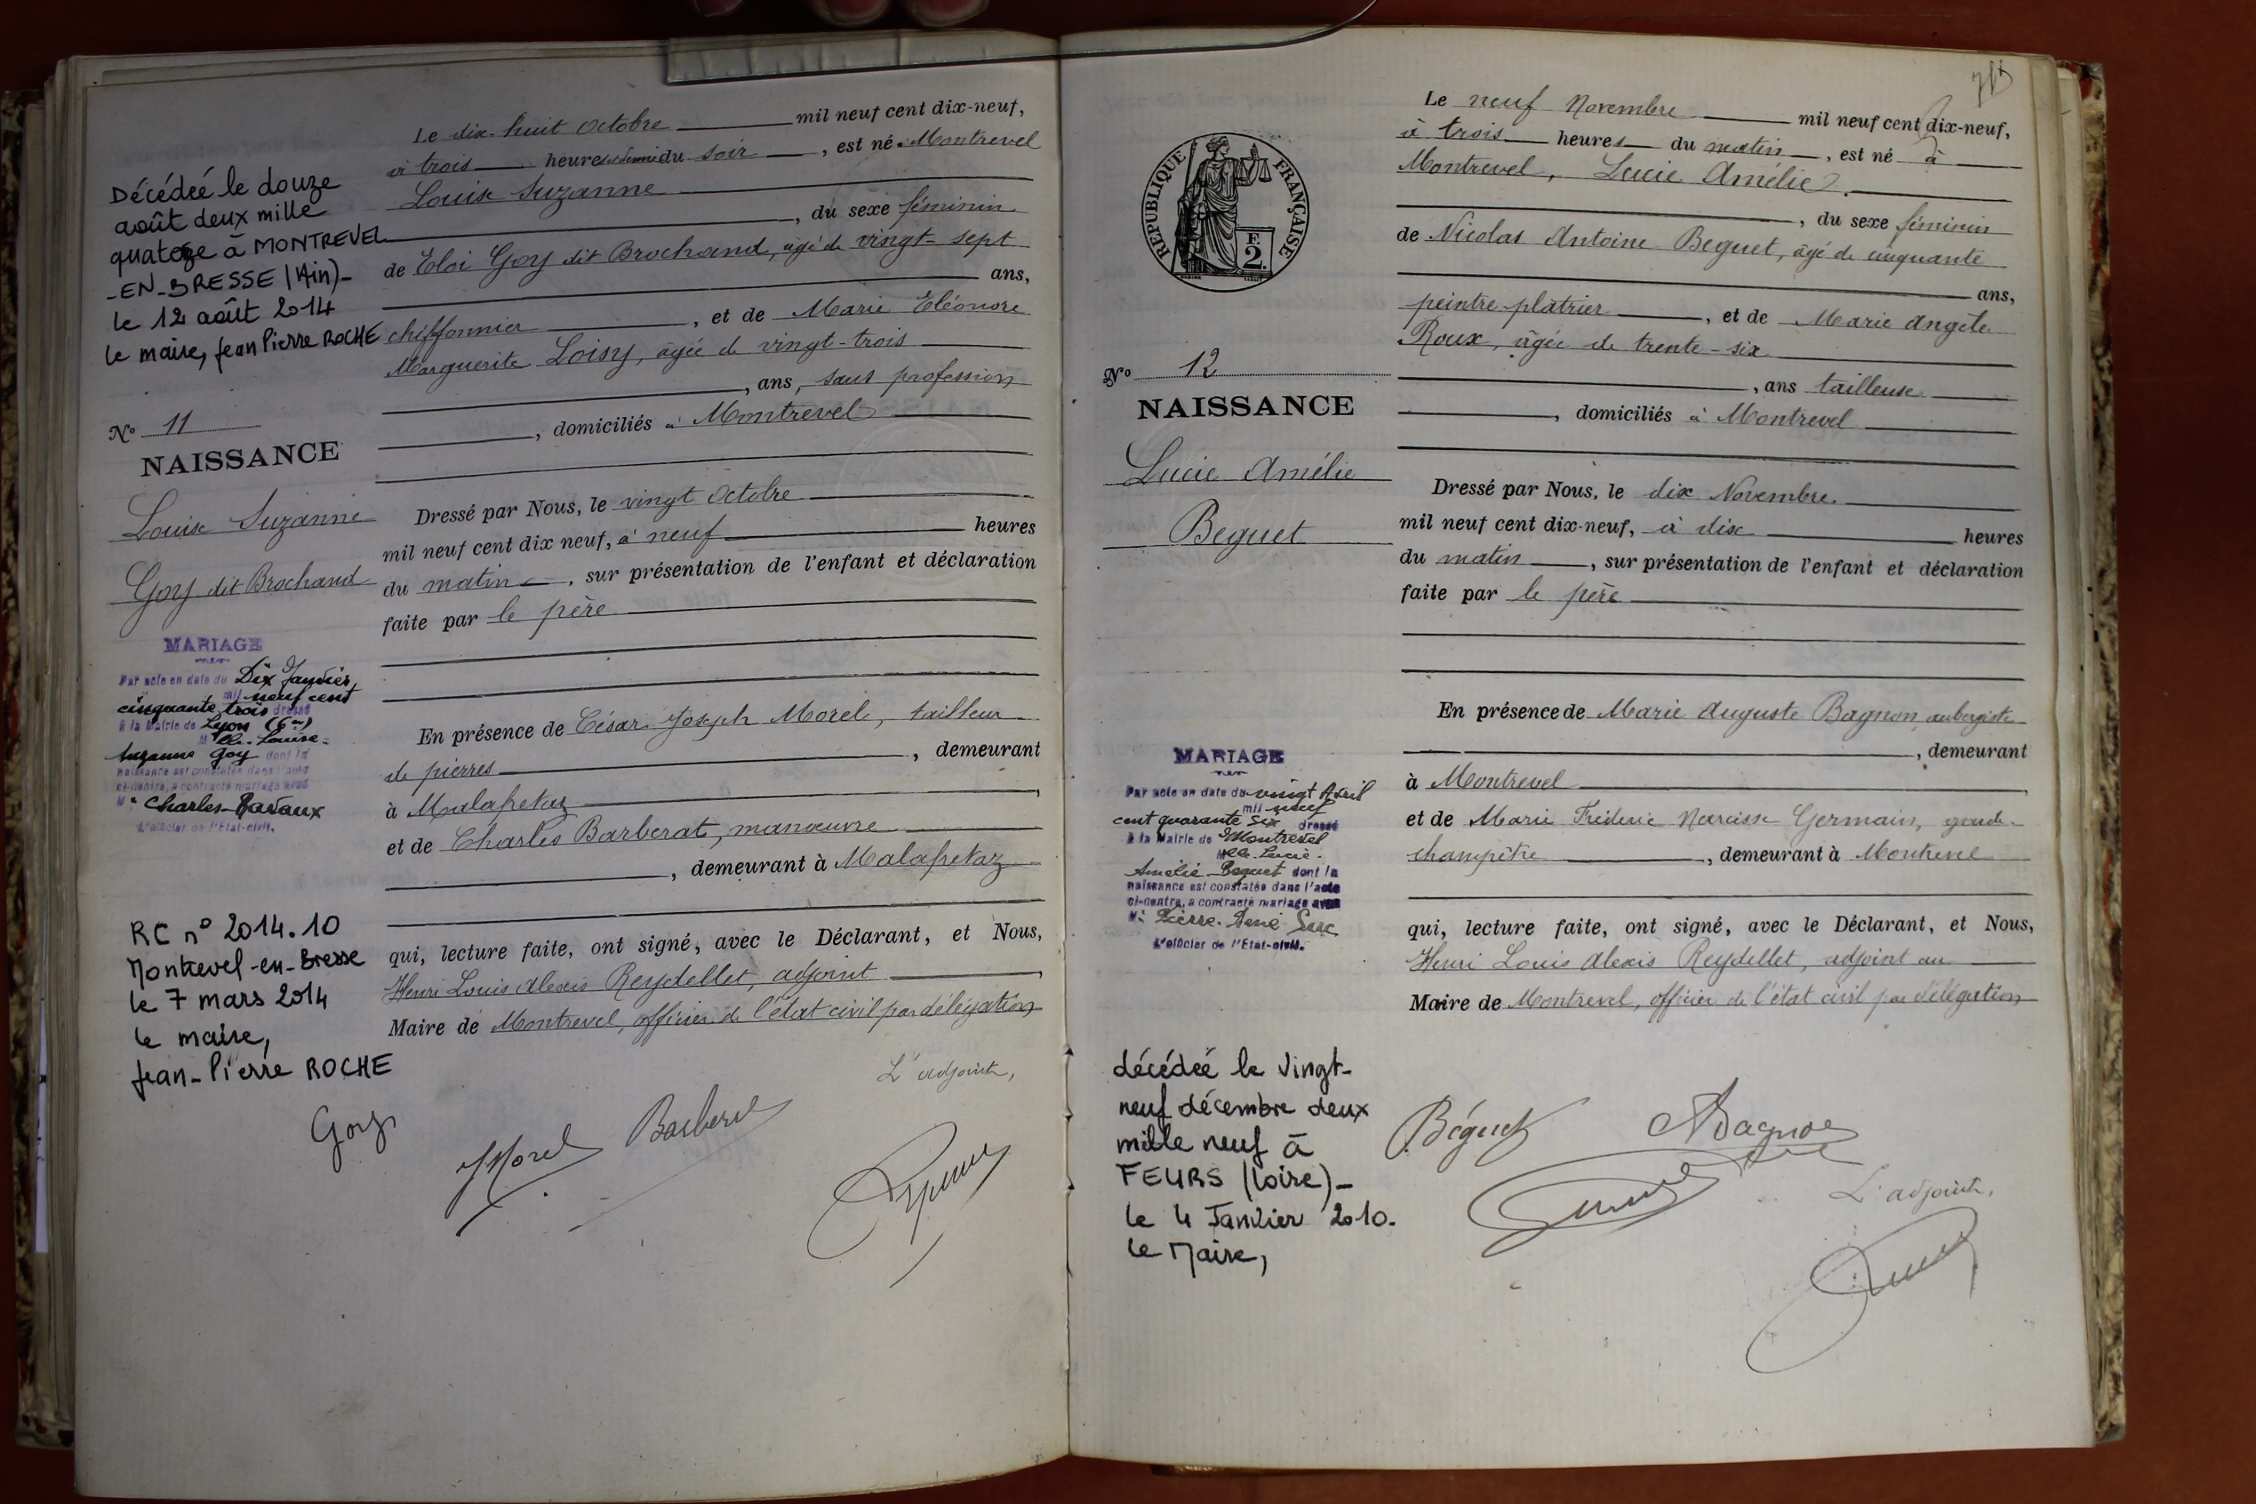 Le dix-huit Octobre mil neuf cent dix-neuf,
à trois heures et demie du soir, est né à Montrevel
Louise Suzanne
, du sexe féminin
de Eloi Goy dit Brochand, âgé de vingt-sept
ans,
chiffonnier, et de Marie Eléonore
Marguerite Loisy, âgée de vingt-trois
, ans, sans profession
, domiciliés à Montrevel
Dressé par Nous, le vingt Octobre
mil neuf cent dix neuf, à neuf heures
du matin, sur présentation de l'enfant et déclaration
faite par le père
En présence de César Joseph Morel, tailleur
de pierres, demeurant
à Malapetaz
et de Charles Barberat, manœuvre
, demeurant à Malapetaz
qui, lecture faite, ont signé, avec le Déclarant, et Nous,
Henri Louis Alexis Reydellet, adjoint
Maire de Montrevel, officier de l'état civil par délégation
L'adjoint,
Goy
JMorel
Barberat
Décédeé le douze
août deux mille
quatorze à MONTREVEL
-EN-BRESSE (Ain)-
le 12 août 2014
le maire, Jean Pierre ROCHE
No 11
NAISSANCE
Louise Suzanne
Goy dit Brochand
MARIAGE
Par acte en date du Dix Janvier
mil neuf cent
cinquante trois dressé
à la Mairie de Lyon (6me)
Mlle Louise-
Suzanne Goy dont la
naissance est constatée dans l'acte
ci-contre, a contracté mariage avec
Mr Charles Ravaux
L'officier de l'Etat-civil.
RC n° 2014.10
Montrevel-en-Bresse
le 7 mars 2014
le maire,
Jean-Pierre ROCHE
RÉPUBLIQUE FRANÇAISE
E
2.
Le neuf Novembre mil neuf cent dix-neuf,
à trois heures du matin, est né à
Montrevel, Lucie Amélie
, du sexe féminin
de Nicolas Antoine Beguet, âgé de cinquante
ans,
peintre-plâtrier, et de Marie Angèle
Roux, âgée de trente-six
, ans tailleuse
, domiciliés à Montrevel
Dressé par Nous, le dix Novembre
mil neuf cent dix-neuf, à dix heures
du matin, sur présentation de l'enfant et déclaration
faite par le père
En présence de Marie Auguste Bagnon, aubergiste
, demeurant
à Montrevel
et de Marie Frédéric Narcisse Germain, garde-
champêtre, demeurant à Montrevel
qui, lecture faite, ont signé, avec le Déclarant, et Nous,
Henri Louis Alexis Reydellet, adjoint au
Maire de Montrevel, officier de l'état civil par délégation
Béguet
L'adjoint,
No 12
NAISSANCE
Lucie Amélie
Beguet
MARIAGE
Par acte en date du vingt Avril
mil neuf
cent quarante six dressé
à la Mairie de Montrevel
Mlle Lucie-
Amélie Beguet dont la
naissance est constatée dans l'acte
ci-contre, a contracté mariage avec
Mr Pierre-René Suc
L'officier de l'Etat-civil.
décédeé le vingt-
neuf décembre deux
mille neuf à
FEURS (Loire)-
le 4 Janvier 2010.
le Maire,